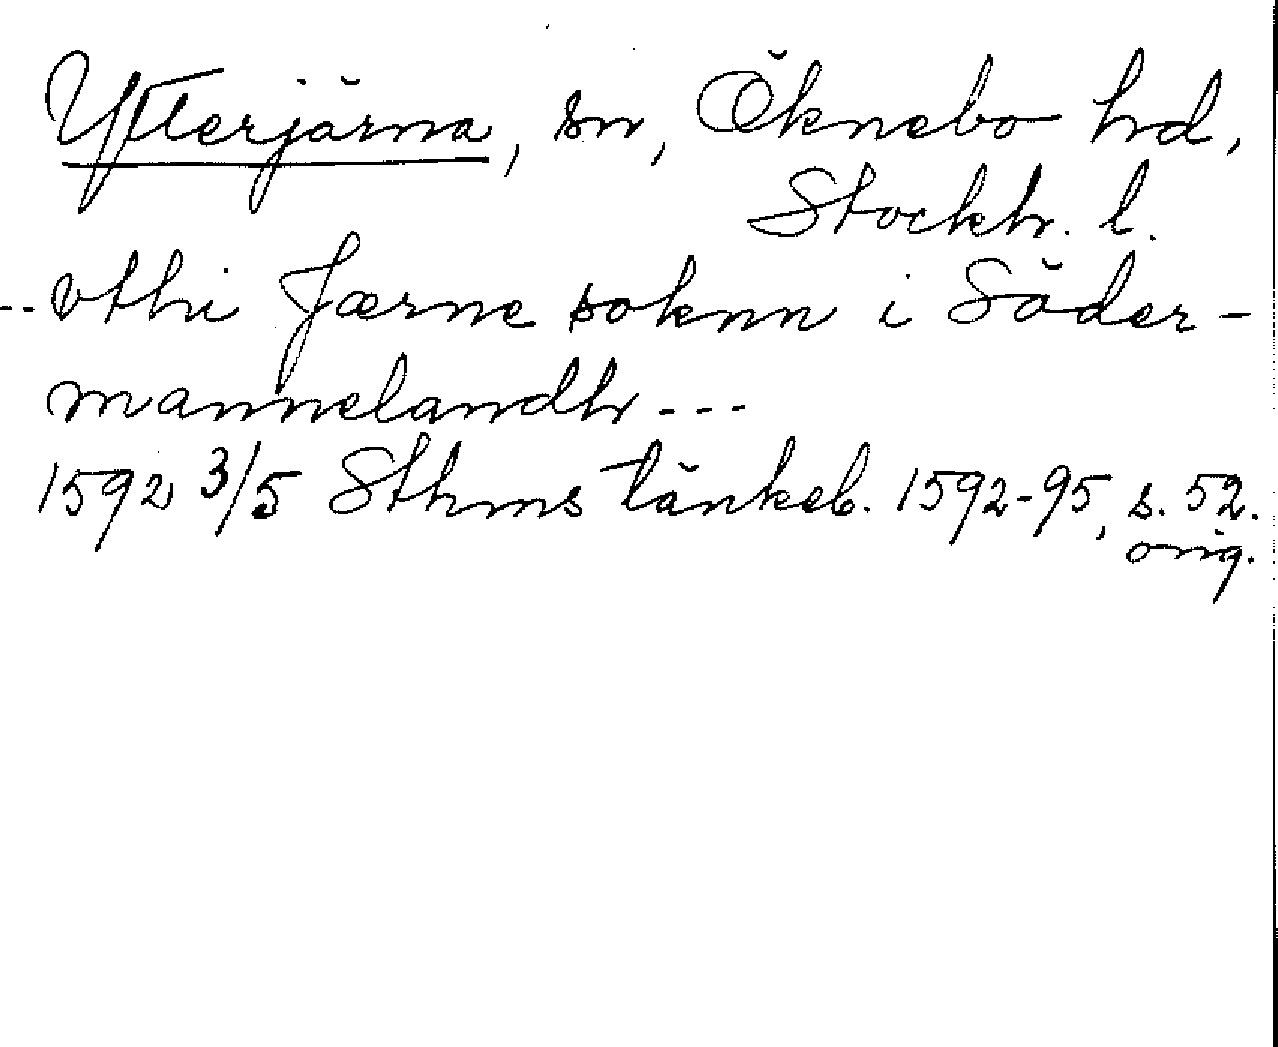 Ytterjärna, sn, Öknebo hd,
Stockh. l.
--vthi Jærne soknn i Söder-
mannelandh ---
1592 3/5 Sthms tänkeb. 1592-95, s. 52.
orig.